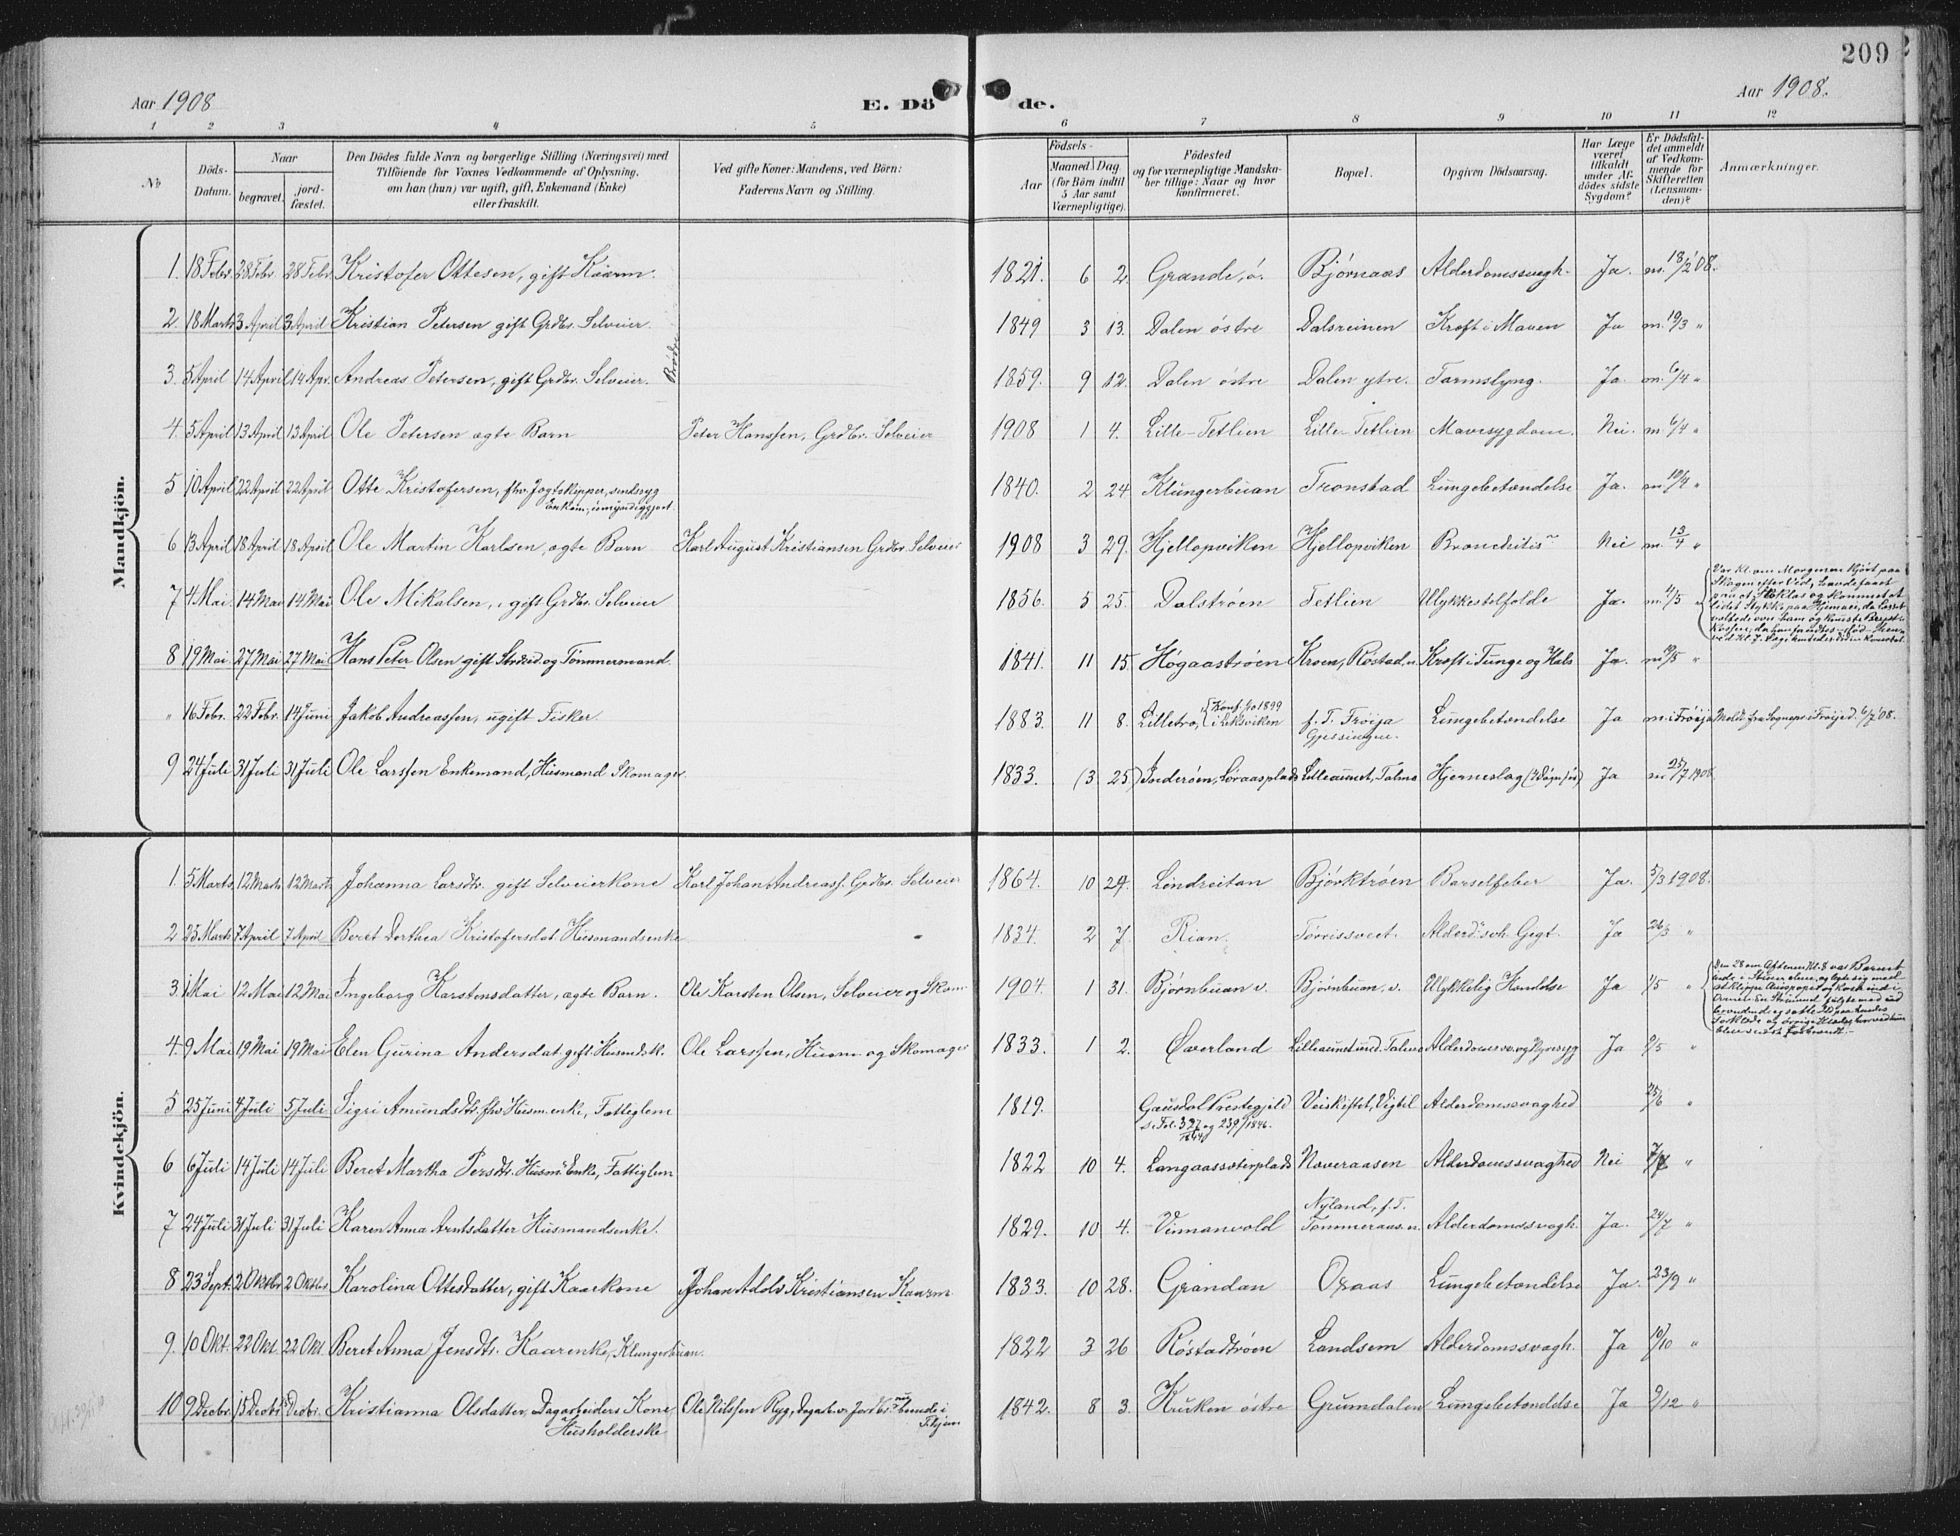 209
Aar 1908
E. Dö
de.
Aar 1908.
1 2 3 4 5 6 7 8 9 10 11 12
No
Döds-Datum.
Naar
begravet.
jord-fæstet.
Den Dödes fulde Navn og borgerlige Stilling (Næringsvei) med
Tilföiende for Voxnes Vedkommende af Oplysning,
om han (hun) var ugift, gift, Enkemand (Enke)
eller fraskilt.
Ved gifte Koner: Mandens, ved Börn:
Faderens Navn og Stilling.
Födsels-
Aar
Maaned
Dag
(for Börn indtil
5 Aar samt
Værnepligtige).
Födested
og for værnepligtige Mandska-
ber tillige: Naar og hvor
konfirmeret.
Bopæl.
Opgiven Dödsaarsag.
Har Læge
været
tilkaldt
under Af-
dödes sidste
Sygdom?
Er Dödsfal-
det anmeldt
af Vedkom-
mende for
Skifteretten
(Lensman-
den)?
Anmærkninger.
Mandkjön.
1. 18 Febr. 28 Febr. 28 Febr. Kristofer Ottesen, gift Kaarm. 1821. 6 2. Grande, ö. Bjørnaas Alderdomssvagh. Ja. m. 18/2 '08.
2. 18 Marts 3 April 3 April Kristian Petersen gift Grdbr. Selveier. 1849 3 13. Dalen østre Dalsreinen Kræft i Maven Ja m. 19/3 "
Brødre
3. 5 April 14 April 14 Apr. Andreas Petersen, gift Grdbr. Selveier. 1859. 9 12. Dalen østre Dalen ytre. Tarmslyng. Ja. m. 6/4 "
4. 5 April 13 April 13 April Ole Petersen ægte Barn Peter Hanssen, Grdbr. Selveier 1908 1 4. Lille-Tetlien Lille-Tetlien Mavesygdom. Nei. m. 6/4 "
5 10 April 22 April 22 April Otte Kristofersen, fhv. Jagtskipper, sindssyg 1840. 2 24 Klungerbuan Tronstad Lungebetændelse Ja. m. 10/4 "
Enkem., umyndiggjort.
6 13 April 18 April 18 April Ole Martin Karlsen, ægte Barn Karl August Kristiansen Grdbr. Selveier 1908 3 29. Hjellopviken Hjellopviken Bronchitis Nei m. 13/4 "
7 4 Mai. 14 Mai 14 Mai Ole Mikalsen, gift Grdbr. Selveier 1856. 5 25. Dalstrøen Tetlien Ulykkestilfælde Ja. m. 4/5 "
8 19 Mai 27 Mai 27 Mai Hans Peter Olsen gift Strøsid. og Tømmermand. 1841. 11 15 Høgaastrøen Kroen, Røstad u. Kræft i Tunge og Hals Ja. m. 19/5 "
" 16 Febr. 22 Febr. 14 Juni Jakob Andreassen, ugift Fisker. 1883. 11 8. Lilletrø, Konf. 1/10 1899 i Leksviken f. T. Frøija Gjessingen. Lungebetændelse Ja m. i Frøija Meldt fra Sognepr. i Frøijed. 6/7 '08.
9 24 Juli 31 Juli 31 Juli Ole Larssen Enkemand, Husmand Skomager. 1833. (3 25) Inderøen, Løraasplads Lilleaunet, Talmo Hjerneslag Ja m 25/7 1908
Kvindekjön.
1. 5 Marts 12 Marts 12 Marts Johanna Larsdtr. gift Selveierkone Karl Johan Andreass. Grdbr. Selveier 1864. 10 24. Lindreitan Bjørktrøen Barselfeber Ja. 5/3 1908.
2 23 Marts 7 April 7 April Beret Dorthea Kristofersdat. Husmandsenke 1834. 2 7 Rian. Tørrissveet. Alderd. svh. Gigt. Ja 26/3 "
3. 1 Mai 12 Mai 12 Mai Ingeborg Karstensdatter, ægte Barn. Ole Karsten Olsen, Selveier og Skom. 1904. 1 31. Bjørnbuan v. Bjørnbuan, v. Ulykkelig Hændelse Ja 1/5 "
4. 9 Mai 19 Mai 19 Mai Elen Gurina Andersdat. gift Husmdsk. Ole Larssen, Husm. og Skomager 1833. 1 2. Øverland Lilleaunet und. Talmo Alderdomssv. og Nyresyg Ja 9/5 "
5 25 Juni 4 Juli 5 Juli Sigri Amundsdtr. fhv. Husm. enke, Fattiglem 1819. Gausdal Prestegjeld Veiskiftet, Vigtil Alderdomssvaghed 25/6 "
6 6 Juli 14 Juli 14 Juli Beret Martha Persdtr. Husm. Enke, Fattiglem 1822 10 4. Langaassæterplads Naveraasen Alderdomssvaghed Nei 7/7 "
7 24 Juli 31 Juli 31 Juli Karen Anna Arntsdatter Husmandsenke. 1829. 10 4. Vinnanvold Nyland, f. T. Tømmeraas. n. Alderdomssvagh. Ja. 24/7 "
8 23 Sept. 2 Oktbr. 2 Oktbr. Karolina Ottesdatter, gift Kaarkone Johan Adolv Kristiansen Kaarm. 1833. 10 28. Grandan Oxaas Lungebetændelse Ja. 23/9 "
9. 10 Okt. 22 Okt. 22 Okt. Beret Anna Jensdtr. Kaarenke, Klungerbuan. 1822 3 26 Røstadtrøen Landsem Alderdomssvagh. Ja 10/10 "
10 9 Decbr. 15 Decbr. Decbr. Kristianna Olsdatter, Dagarbeiders Kone Ole Nilssen Ryg, Dagarb. 1842. 8 3. Kurken østre Grumdalen Lungebetændelse Ja 9/12 "
Husholderske